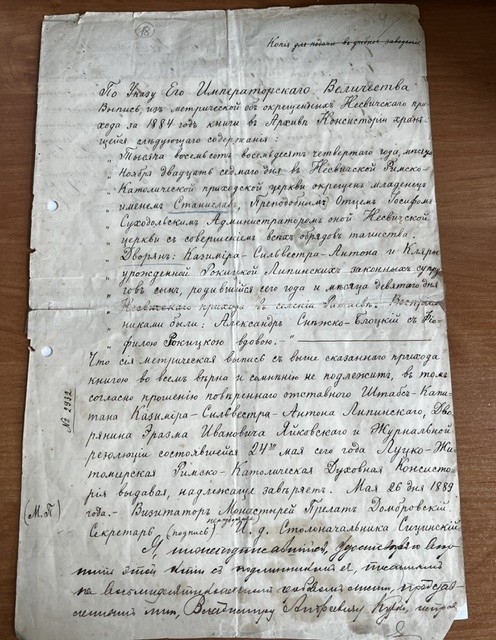 18
Копія для подачи въ учебное заведеніе
По Указу Его Императорскаго Величества
Выпись изъ метрической объ окрещенныхъ Несвичскаго при-
хода за 1884 годъ книги въ Архивѣ Консисторіи храня-
щейся слѣдующаго содержанія:
„ Тысяча восемьсотъ восемьдесятъ четвертаго года, мѣсяца
„ Ноября двадцать седьмаго дня въ Несвичской Римско-
„ Католической приходской церкви окрещенъ младенецъ
„ именемъ Станиславъ, Преподобнымъ Отцемъ Іосифомъ
„ Суходольскимъ Администраторомъ оной Несвичской
„ церкви съ совершеніемъ всѣхъ обрядовъ таинства.
„ Дворянъ: Казиміра-Сильвестра-Антона и Клары
„ урожденной Рокицкой Липинскихъ законныхъ супру-
„ говъ сынъ, родившійся сего года и мѣсяца девятаго дня
„ Несвичскаго прихода въ селеніи Воспріем-
„ никами были: Александръ Снѣжко-Блоцкій съ Тео-
„ филою Рокицкою вдовою. “
Что сія метрическая выпись съ выше сказаннаго прихода
книгою во всемъ вѣрна и сомнѣнію не подлежитъ, въ томъ
согласно прошенію повѣреннаго отставнаго Штабсъ-Капи-
тана Казиміра-Сильвестра-Антона Липинскаго, Дво-
рянина Эразма Ивановича Яйковскаго и Журнальной
резолюціи состоявшейся 24го мая сего года Луцко-Жи-
томирская Римско-Католическая Духовная Консисто-
рія выдавая, надлежаще завѣряетъ. Мая 26 дня 1889
года.- Визитаторъ Монастырей Прелатъ Домбровскій
Секретарь (подпись) И. д. Столоначальника Сицинскій
№ 2932.
(М.П)
Я, нижеподписавшійся,
этой копіи съ подлинникомъ ея,
на
Владиміру Андреевичу